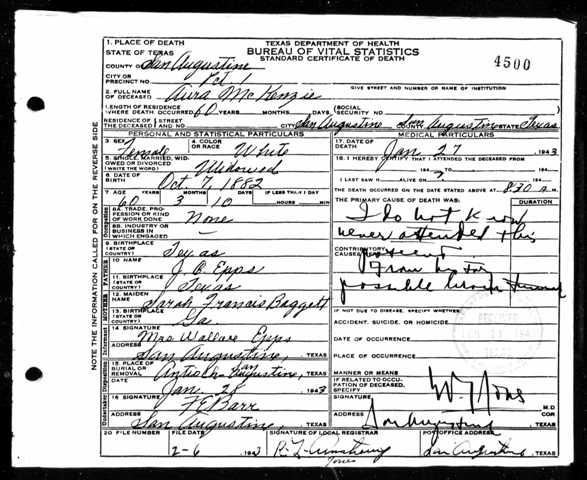 TEXAS DEPARTMENT OF HEALTH
BUREAU OF VITAL STATISTICS
STANDARD CERTIFICATE OF DEATH
4500
1. PLACE OF DEATH
STATE OF TEXAS
COUNTY OF San Augustine
CITY OR PRECINCT NO. Pct 1
GIVE STREET AND NUMBER OR NAME OF INSTITUTION
2. FULL NAME OF DECEASED McKenzie
LENGTH OF RESIDENCE WHERE DEATH OCCURRED 60 YEARS MONTHS DAYS (SOCIAL SECURITY NO.
RESIDENCE OF THE DECEASED STREET AND NO. CITY San Augustine COUNTY San Augustine STATE Texas
PERSONAL AND STATISTICAL PARTICULARS
3. SEX Female
4. COLOR OR RACE White
5. SINGLE, MARRIED, WIDOWED OR DIVORCED (WRITE THE WORD) Widowed
6. DATE OF BIRTH Oct 7, 1882
7. AGE YEARS MONTHS DAYS IF LESS THAN 1 DAY
60 3 10 HOURS MIN
8A. TRADE, PROFESSION OR KIND OF WORK DONE None
8B. INDUSTRY OR BUSINESS IN WHICH ENGAGED —
9. BIRTHPLACE (STATE OR COUNTRY) Texas
10. NAME J. C. Epps
11. BIRTHPLACE (STATE OR COUNTRY) Texas
12. MAIDEN NAME Sarah Francis Baggett
13. BIRTHPLACE (STATE OR COUNTRY) Ga
14. SIGNATURE Mrs Wallace Epps
ADDRESS San Augustine, TEXAS
15. PLACE OF BURIAL OR REMOVAL Antioch San Augustine, TEXAS
DATE Jan. 28 1943
16. SIGNATURE F. E. Barr
ADDRESS San Augustine, TEXAS
MEDICAL PARTICULARS
17. DATE OF DEATH Jan 27 1943
18. I HEREBY CERTIFY THAT I ATTENDED THE DECEASED FROM
194 TO 194
I LAST SAW H ALIVE ON 194
THE DEATH OCCURRED ON THE DATE STATED ABOVE AT 8:30 A M
THE PRIMARY CAUSE OF DEATH WAS:
DURATION
I do not know
never attended this
CONTRIBUTORY CAUSES
patient
possible
IF NOT DUE TO DISEASE, SPECIFY WHETHER:
ACCIDENT, SUICIDE, OR HOMICIDE
DATE OF OCCURRENCE
PLACE OF OCCURRENCE
MANNER OR MEANS
IF RELATED TO OCCUPATION OF DECEASED, SPECIFY
M.D.
COR
ADDRESS San Augustine TEXAS
20. FILE NUMBER
FILE DATE 2-6 1943
SIGNATURE OF LOCAL REGISTRAR R. L. Armstrong
POSTOFFICE ADDRESS San Augustine TEXAS
NOTE THE INFORMATION CALLED FOR ON THE REVERSE SIDE
Occupation
FATHER
MOTHER
Informant
Undertaker Disposition